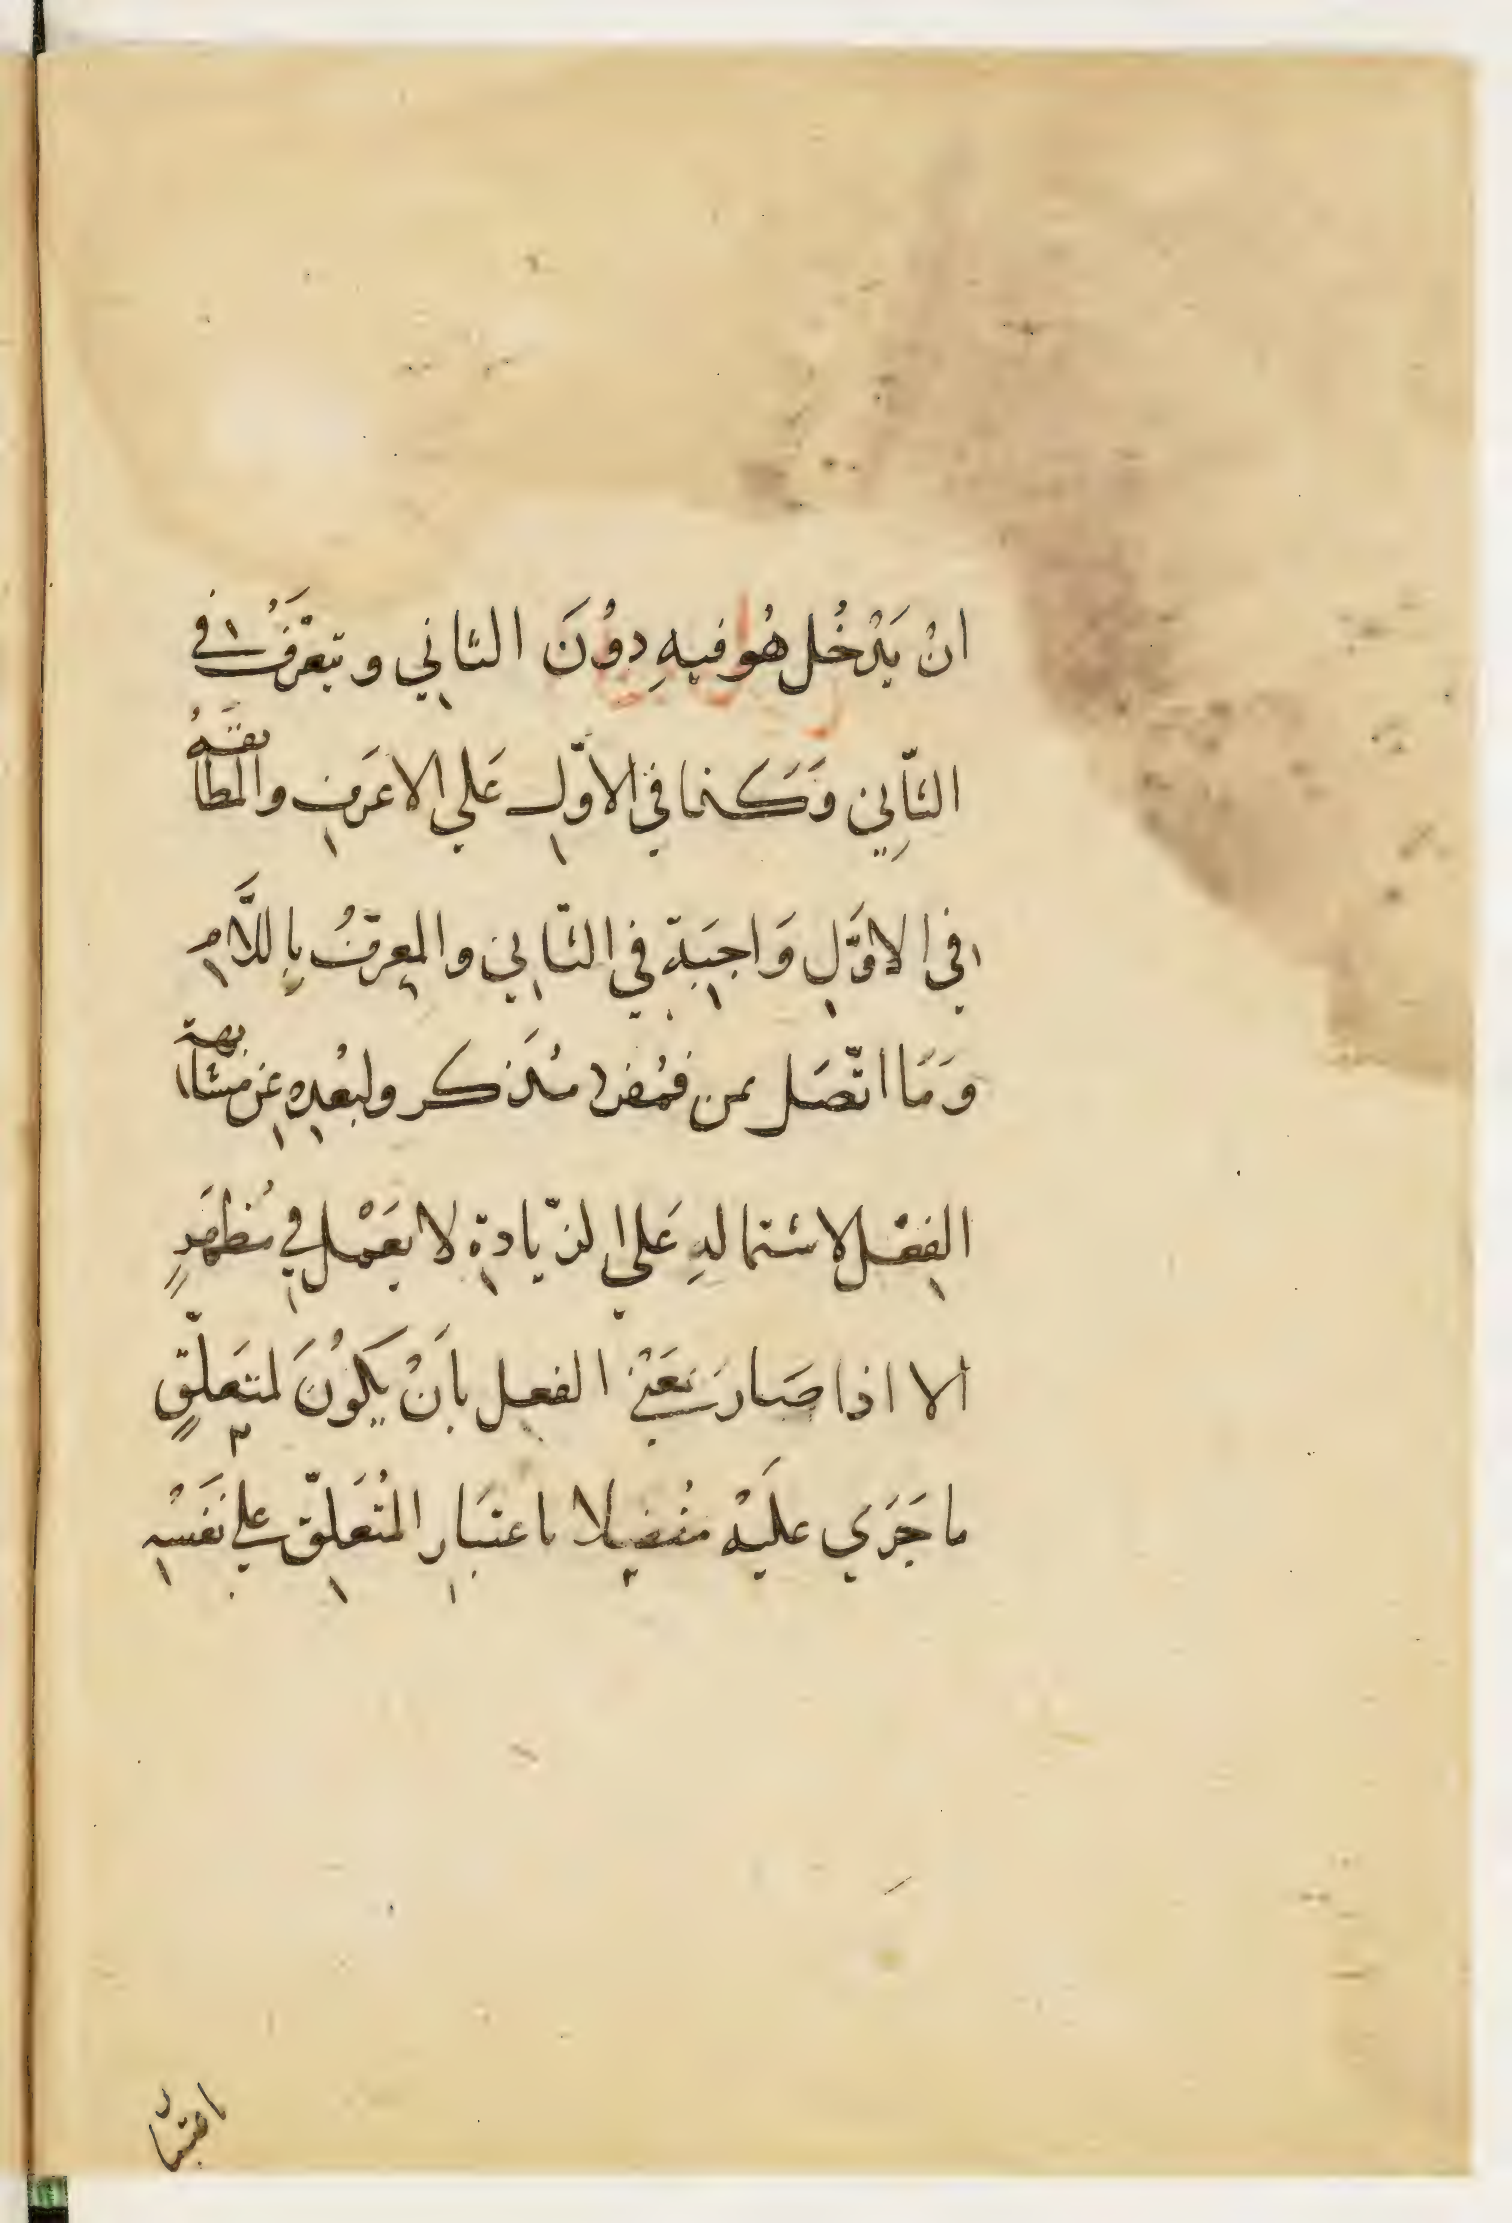 انْ يَدْخُل هُو فيهِ دوُنَ الثاني و تبعرَّفُ في
الثّانِي وَكَنما في الاوّلِ عَلي الاعرَفِ والمطابقَةُ
في الاوَّلِ وَاجبَة في الثّانِي والمعرّفُ بِاللَّامِ
وَمَا اتّصَل بمن فمُفرد مُذَكر ولبُعدِهِ عَن مشابهة
الفِعْل لاشتمالهِ عَلي الزّيادةِ لا يَعْمَل في مُظهَرٍ
الا اذا صَار بَعَنْي الفعل بأَنْ يَكوُنَ لمتَعلّقٍ
ما جَرَي علَيْهِ مفُضلا باعتبَارِ المتُعَلّق علي نَفَسْهِ
باعتبار